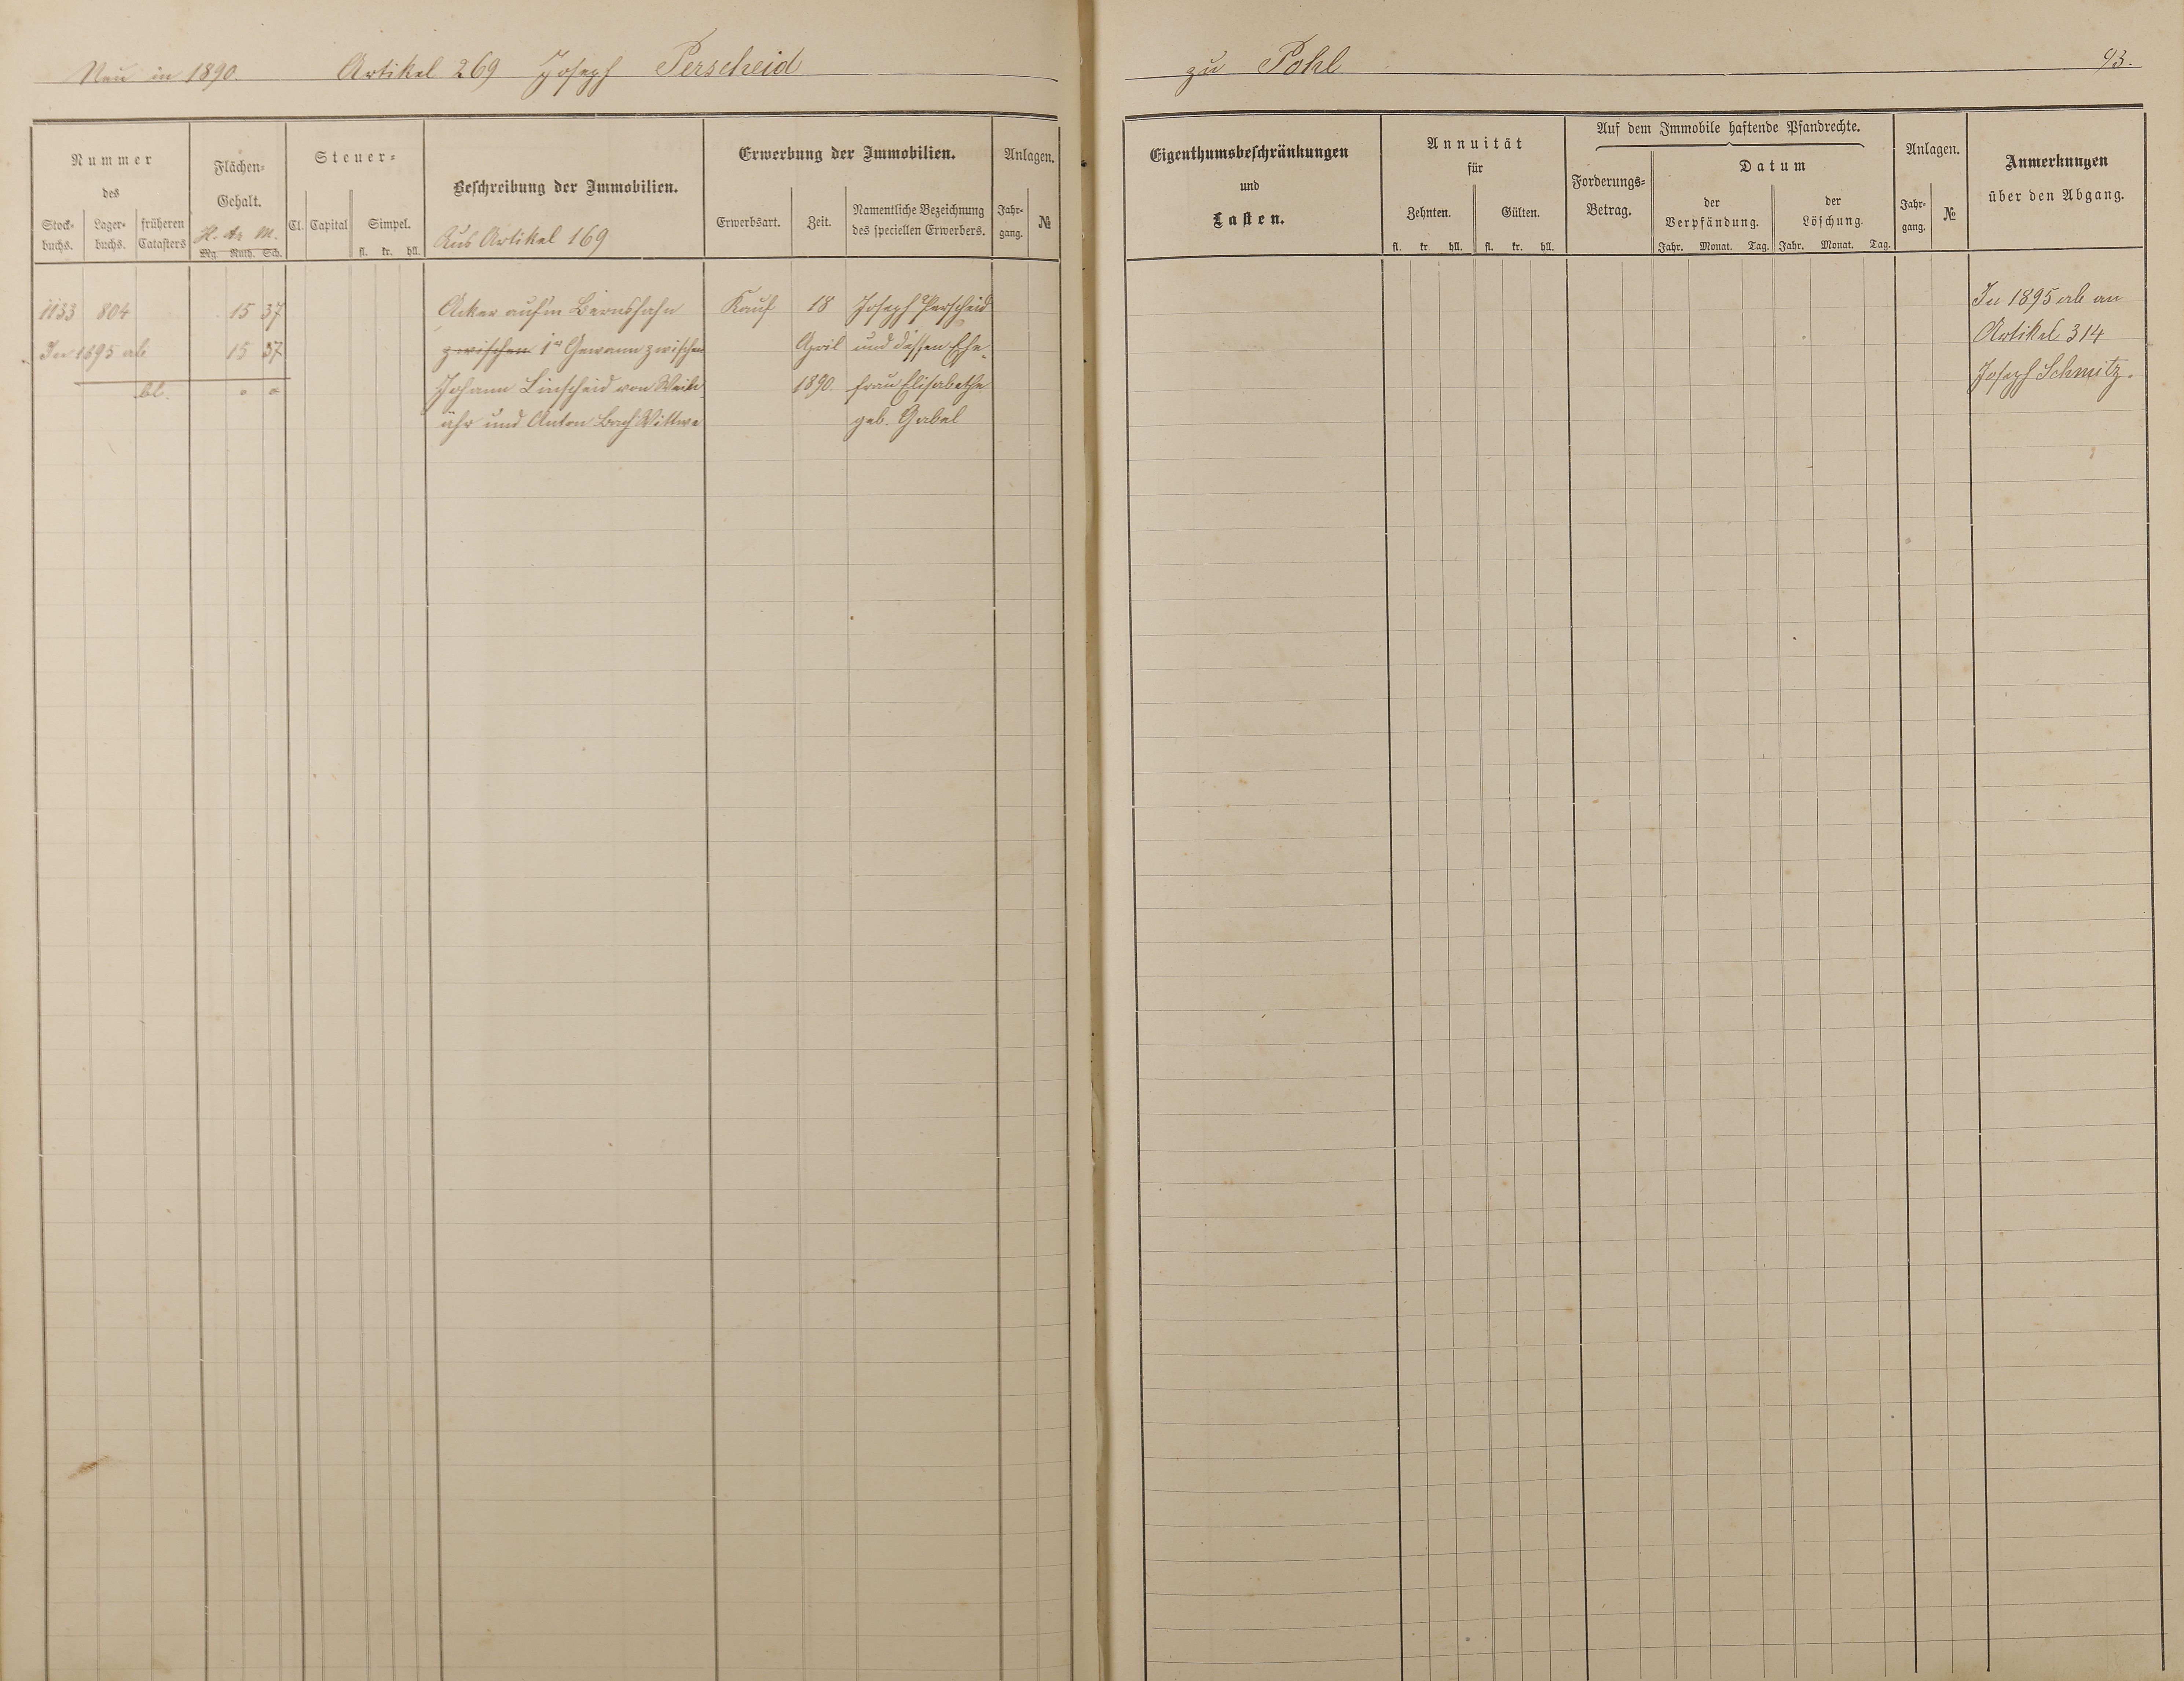 Neu in 1890. Artikel 269 Joseph Perscheid
zu Pohl 93.
Nummer
des
Stock-
buchs.
Lager-
buchs.
früheren
Catasters
Flächen-
Gehalt.
H. Ar M.
Mg. Ruth. Sch.
Steuer-
Cl. Capital Simpel.
fl. kr. hll.
Beschreibung der Immobilien.
Aus Artikel 169
Erwerbung der Immobilien.
Erwerbsart. Zeit.
Namentliche Bezeichnung
des speciellen Erwerbers.
Anlagen.
Jahr-
gang.
№
1133 804 15 37 Acker auf'm Bernshahn Kauf 18 Joseph Perscheid
In 1895 ab 15 37 zwischen 1te Gewann zwischen April und dessen Ehe-
bl. " " Johann Linscheid von Wein- 1890. frau Elisabetha
ähr und Anton Bach Wittwe geb. Gabel
Eigenthumsbeschränkungen
und
Lasten.
Annuität
für
Zehnten. Gülten.
fl. kr. hll. fl. kr. hll.
Auf dem Immobile haftende Pfandrechte.
Forderungs-
Betrag.
Datum
der
Verpfändung.
der
Löschung.
Jahr. Monat. Tag. Jahr. Monat. Tag.
Anlagen.
Jahr-
gang.
№
Anmerkungen
über den Abgang.
In 1895 ab an
Artikel 314
Joseph Schmitz.